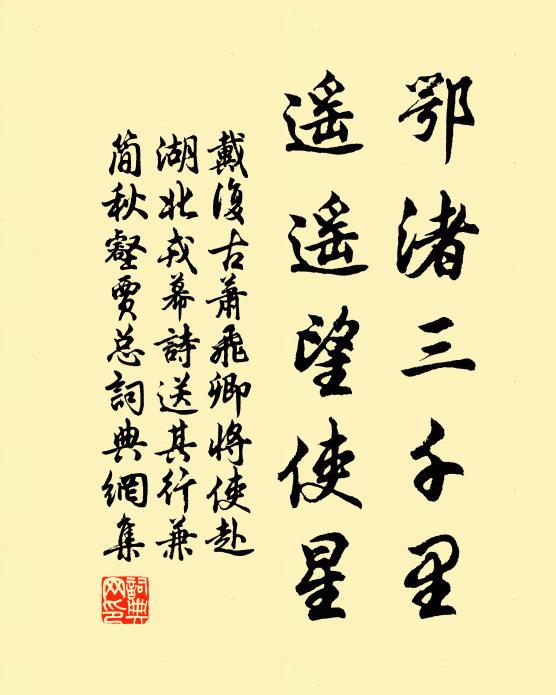 鄂渚三千里
遥遥望使星
戴復古蕭飛卿將使赴
湖北戎幕詩送其行兼
简秋壑賈总詞典網集
詞典网印